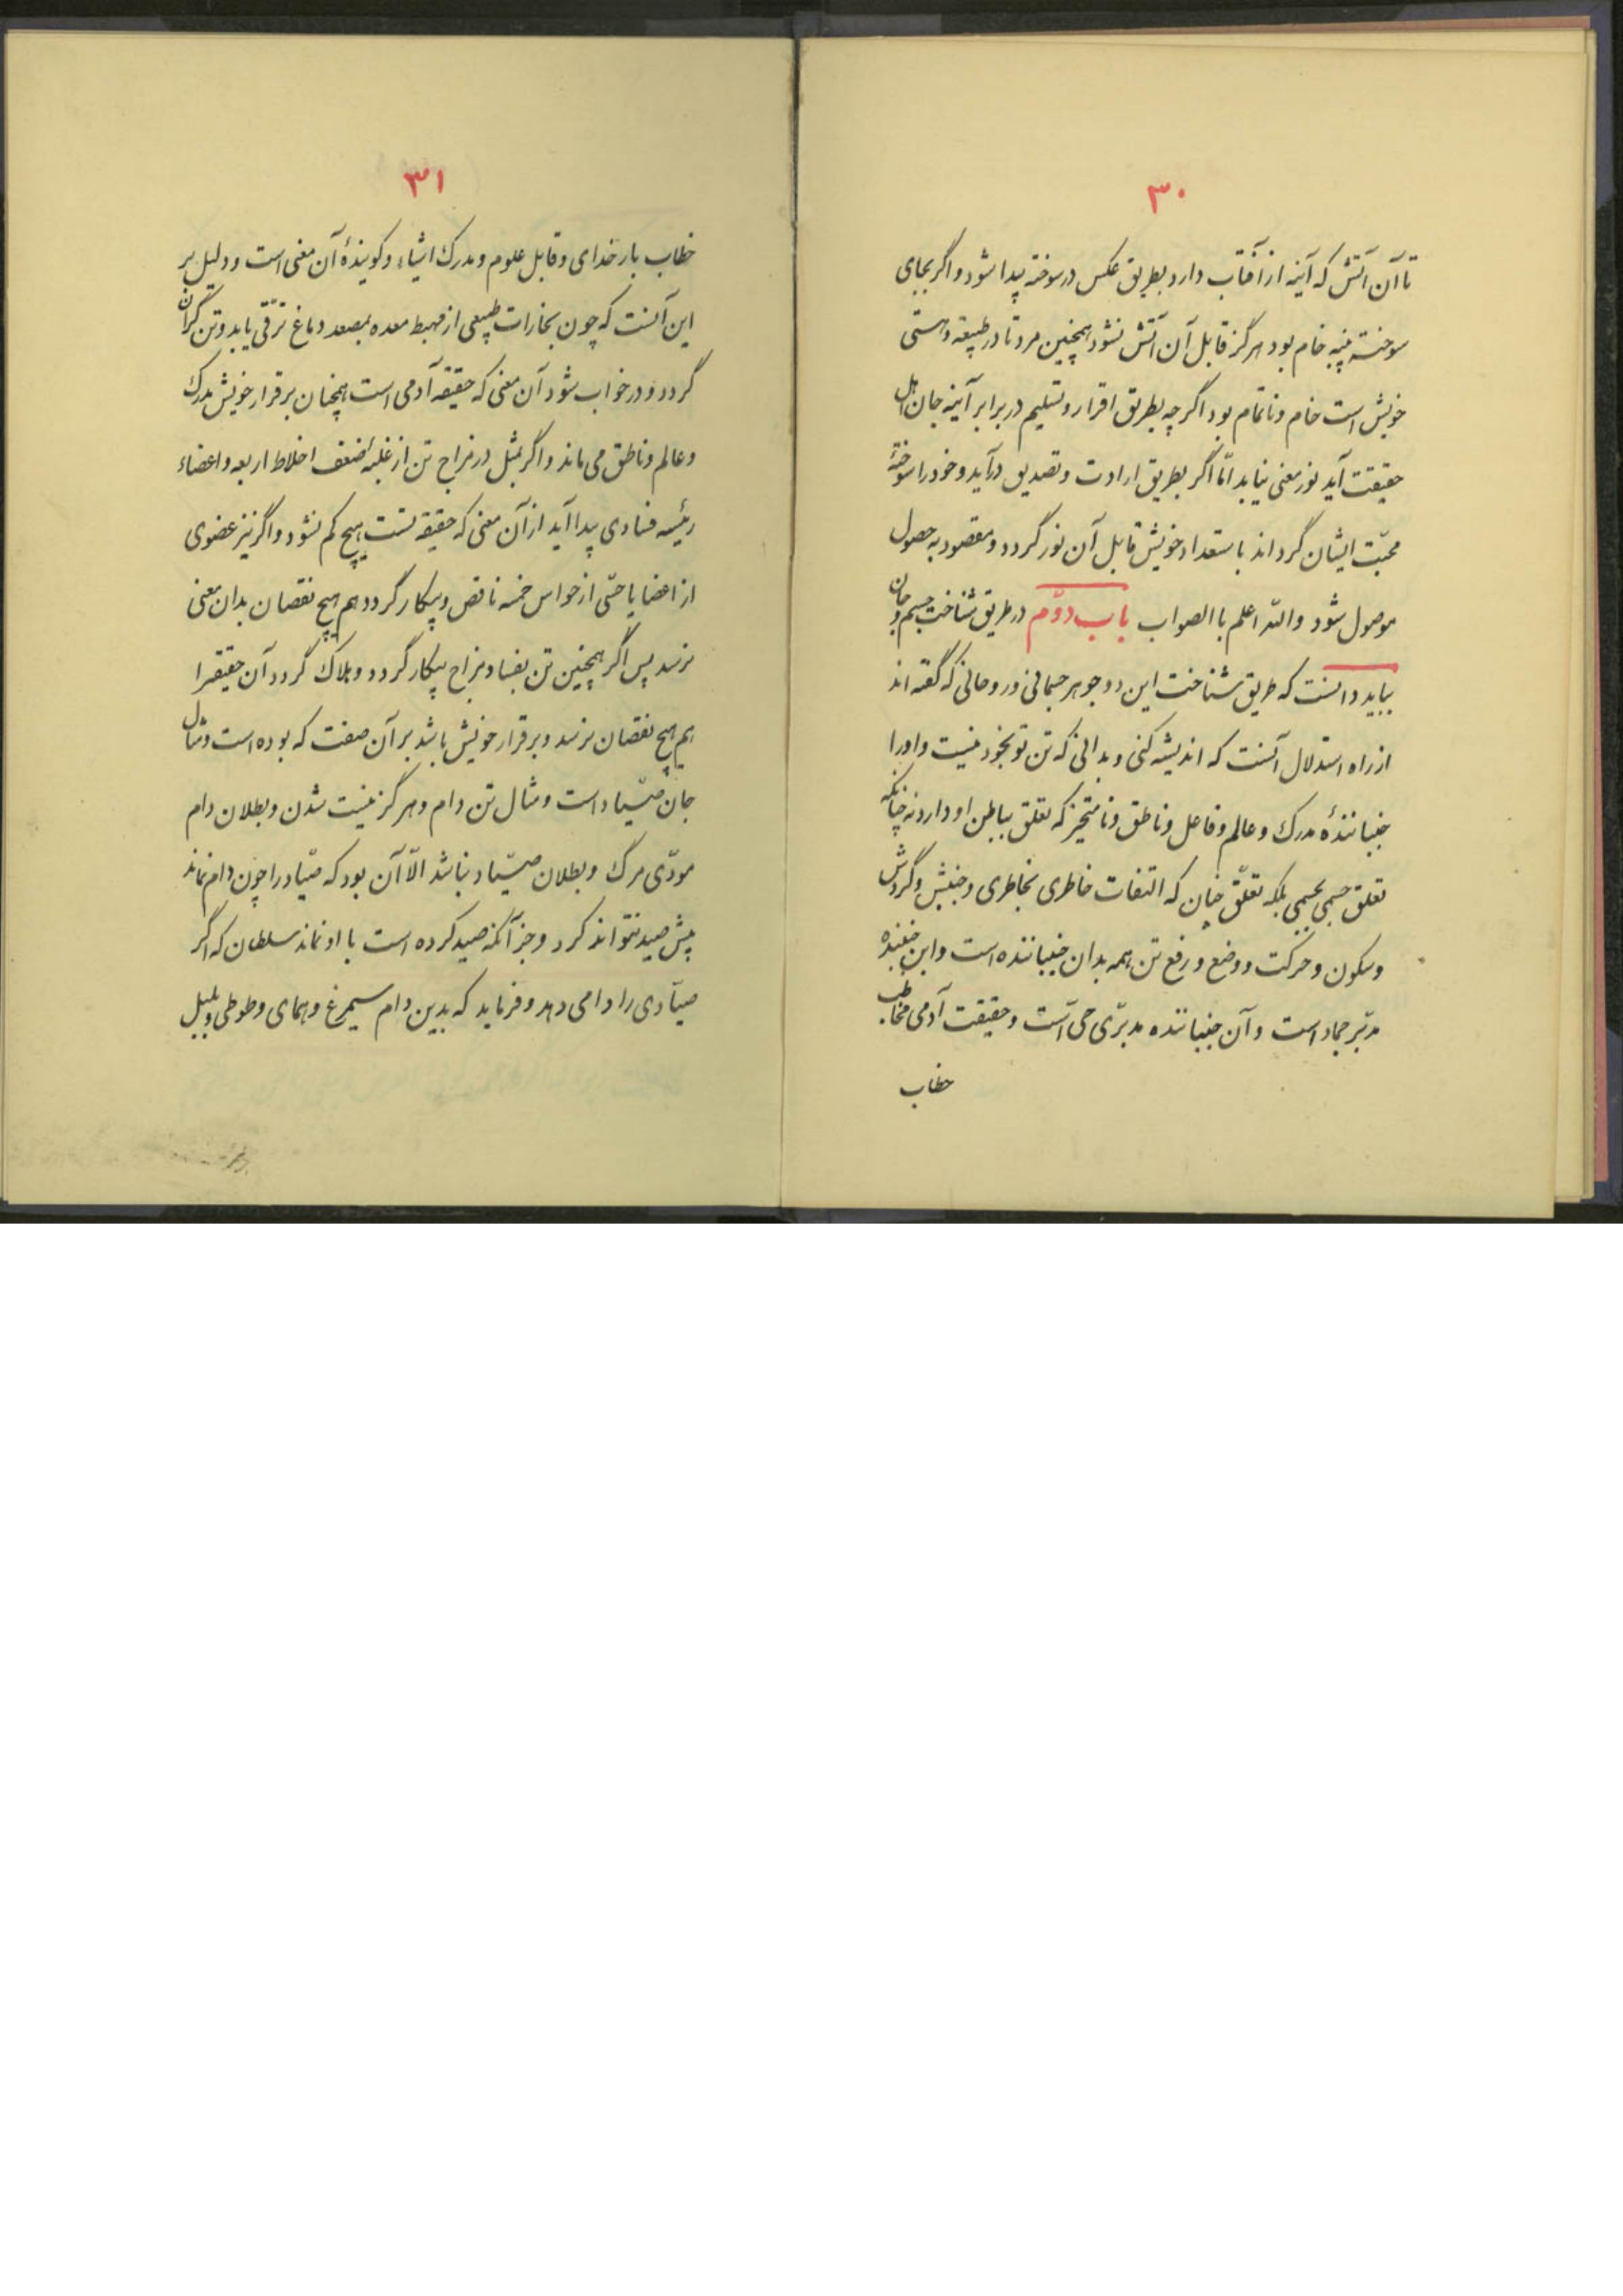 ۳۰
تا آن آتش که آینه از آفتاب دارد بطریق عکس در سوخته پیدا شود و اگر بجای
سوخته پنبه خام بود هرگز قابل آن آتش نشود همچنین مرد تا در طبیعة و هستی
خویش است خام و ناتمام بود اگر چه بطریق اقرار و تسلیم در برابر آینه جان اهل
حقیقت آید نور معنی نیابد امّا اگر بطریق ارادت و تصدیق درآید و خود را سوختهٔ
محبّت ایشان گرداند باستعداد خویش قابل آن نور گردد و مقصود به حصول
موصول شود والله اعلم باالصواب باب دوّم در طریق شناخت جسم و جان
بباید دانست که طریق شناخت این دو جوهر جسمانی و روحانی که گفته اند
از راه استدلال آنست که اندیشه کنی و بدانی که تن تو بخود نیست و او را
جنبانندهٔ مدرک و عالم و فاعل و ناطق و نامتحیز که تعلق بباطن او دارد نه چنانکه
تعلق جسمی بجسمی بلکه تعلّق چنان که التفات خاطری بخاطری و جنبش و گردش
و سکون و حرکت و وضع و رفع تن همه بدان جنباننده است و این جنبنده
مدبّر جماد است و آن جنباننده مدبّری حی است و حقیقت آدمی مخاطب
خطاب
۳۱
خطاب بار خدای و قابل علوم و مدرک اشیاء و گویندهٔ آن معنی است و دلیل بر
این آنست که چون بخارات طبیعی از مهبط معده بمصعد دماغ ترقّی یابد و تن گران
گردد و در خواب شود آن معنی که حقیقة آدمی است همچنان برقرار خویش مدرک
و عالم و ناطق می ماند و اگر بمثل در مزاج تن از غلبهٔ ضعف اخلاط اربعه و اعضاء
رئیسه فسادی پیدا آید از آن معنی که حقیقة تست هیچ کم نشود و اگر نیز عضوی
از اعضا یا حسّی از حواس خمسه ناقص و بیکار گردد هم هیچ نقصان بدان معنی
نرسد پس اگر همچنین تن بفساد مزاج بیکار گردد و هلاک گردد آن حقیقه را
هم هیچ نقصان نرسد و برقرار خویش باشد بر آن صفت که بوده است و مثال
جان صیّاد است و مثال تن دام و هرگز نیست شدن و بطلان دام
مودّی مرگ و بطلان صیّاد نباشد الّا آن بود که صیّاد را چون دام نماند
بیش صید نتواند کرد و جز آنکه صید کرده است با او نماند سلطان که اگر
صیّادی را دامی دهد و فرماید که بدین دام سیمرغ و همای و طوطی و بلبل